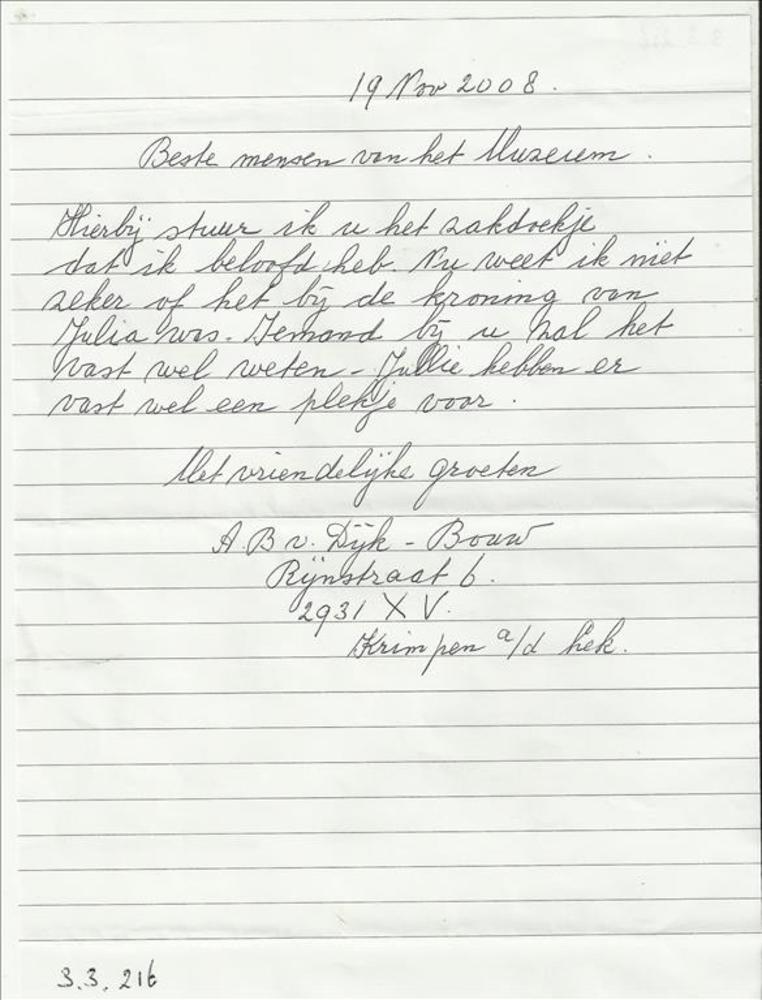 19 Nov 2008.
Beste mensen van het Muzeum.
Hierbij stuur ik u het zakdoekje
dat ik beloofd heb. Nu weet ik niet
zeker of het bij de kroning van
Julia was. Iemand bij u zal het
vast wel weten - Jullie hebben er
vast wel een plekje voor.
Met vriendelijke groeten
A.B v. Dijk - Bouw
Rijnstraat 6.
2931 XV.
Krimpen a/d Lek.
3.3.216